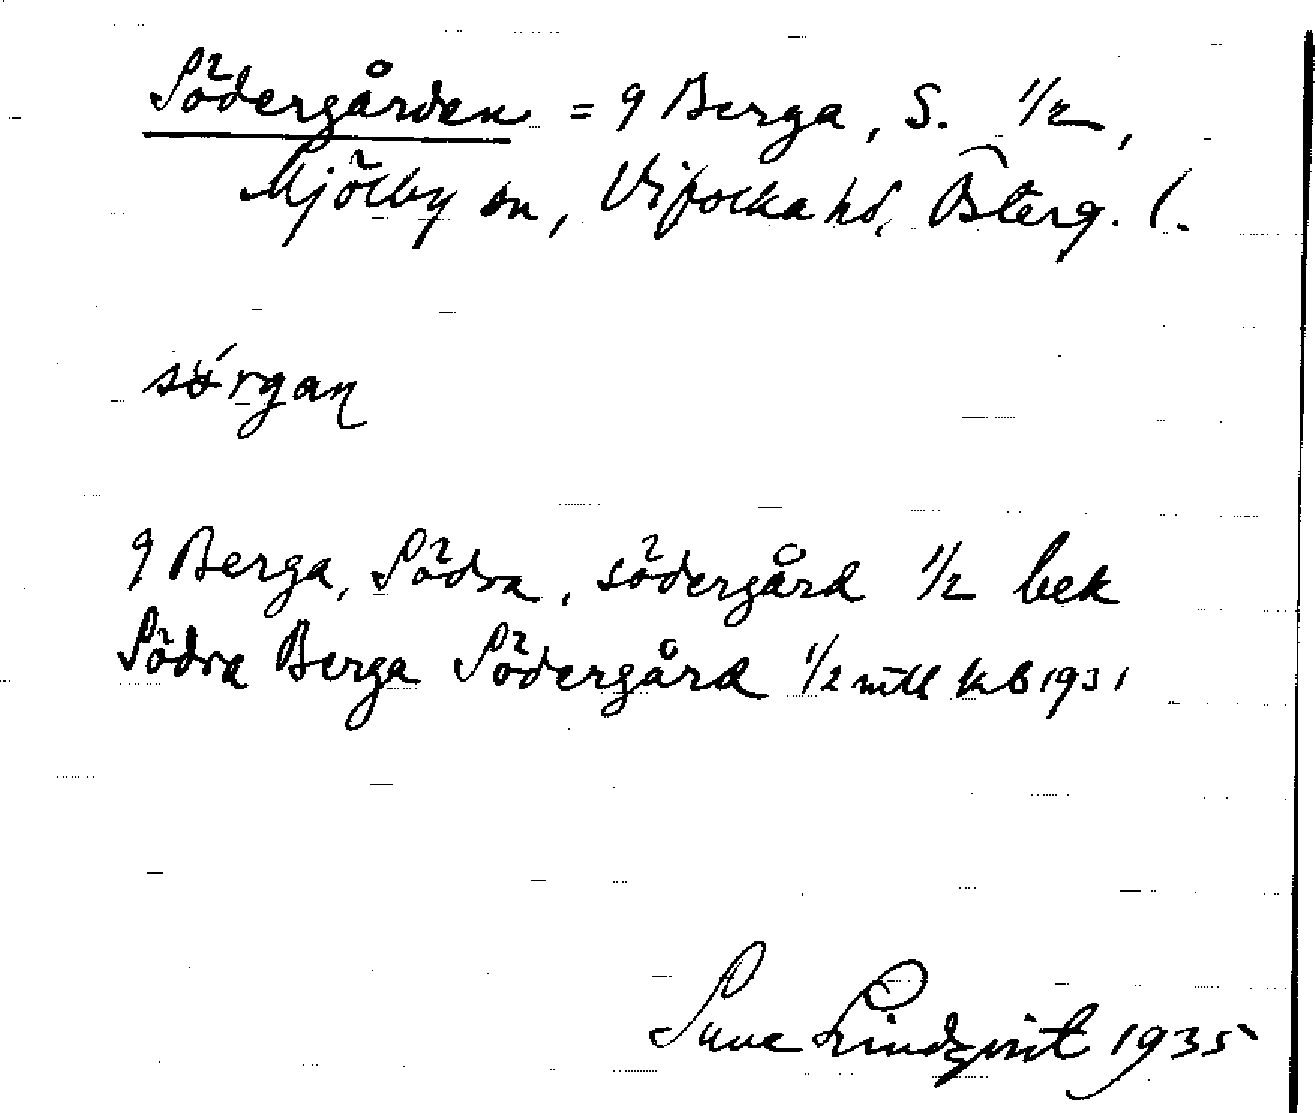 Södergården = 9 Berga, S. 1/2,
Mjölby sn, Vifolka hd, Österg. l.
sǿrgaɳ
9 Berga, Södra, södergård 1/2 bek
Södra Berga Södergård 1/2 mtl kb 1931
Sune Lindqvist 1935